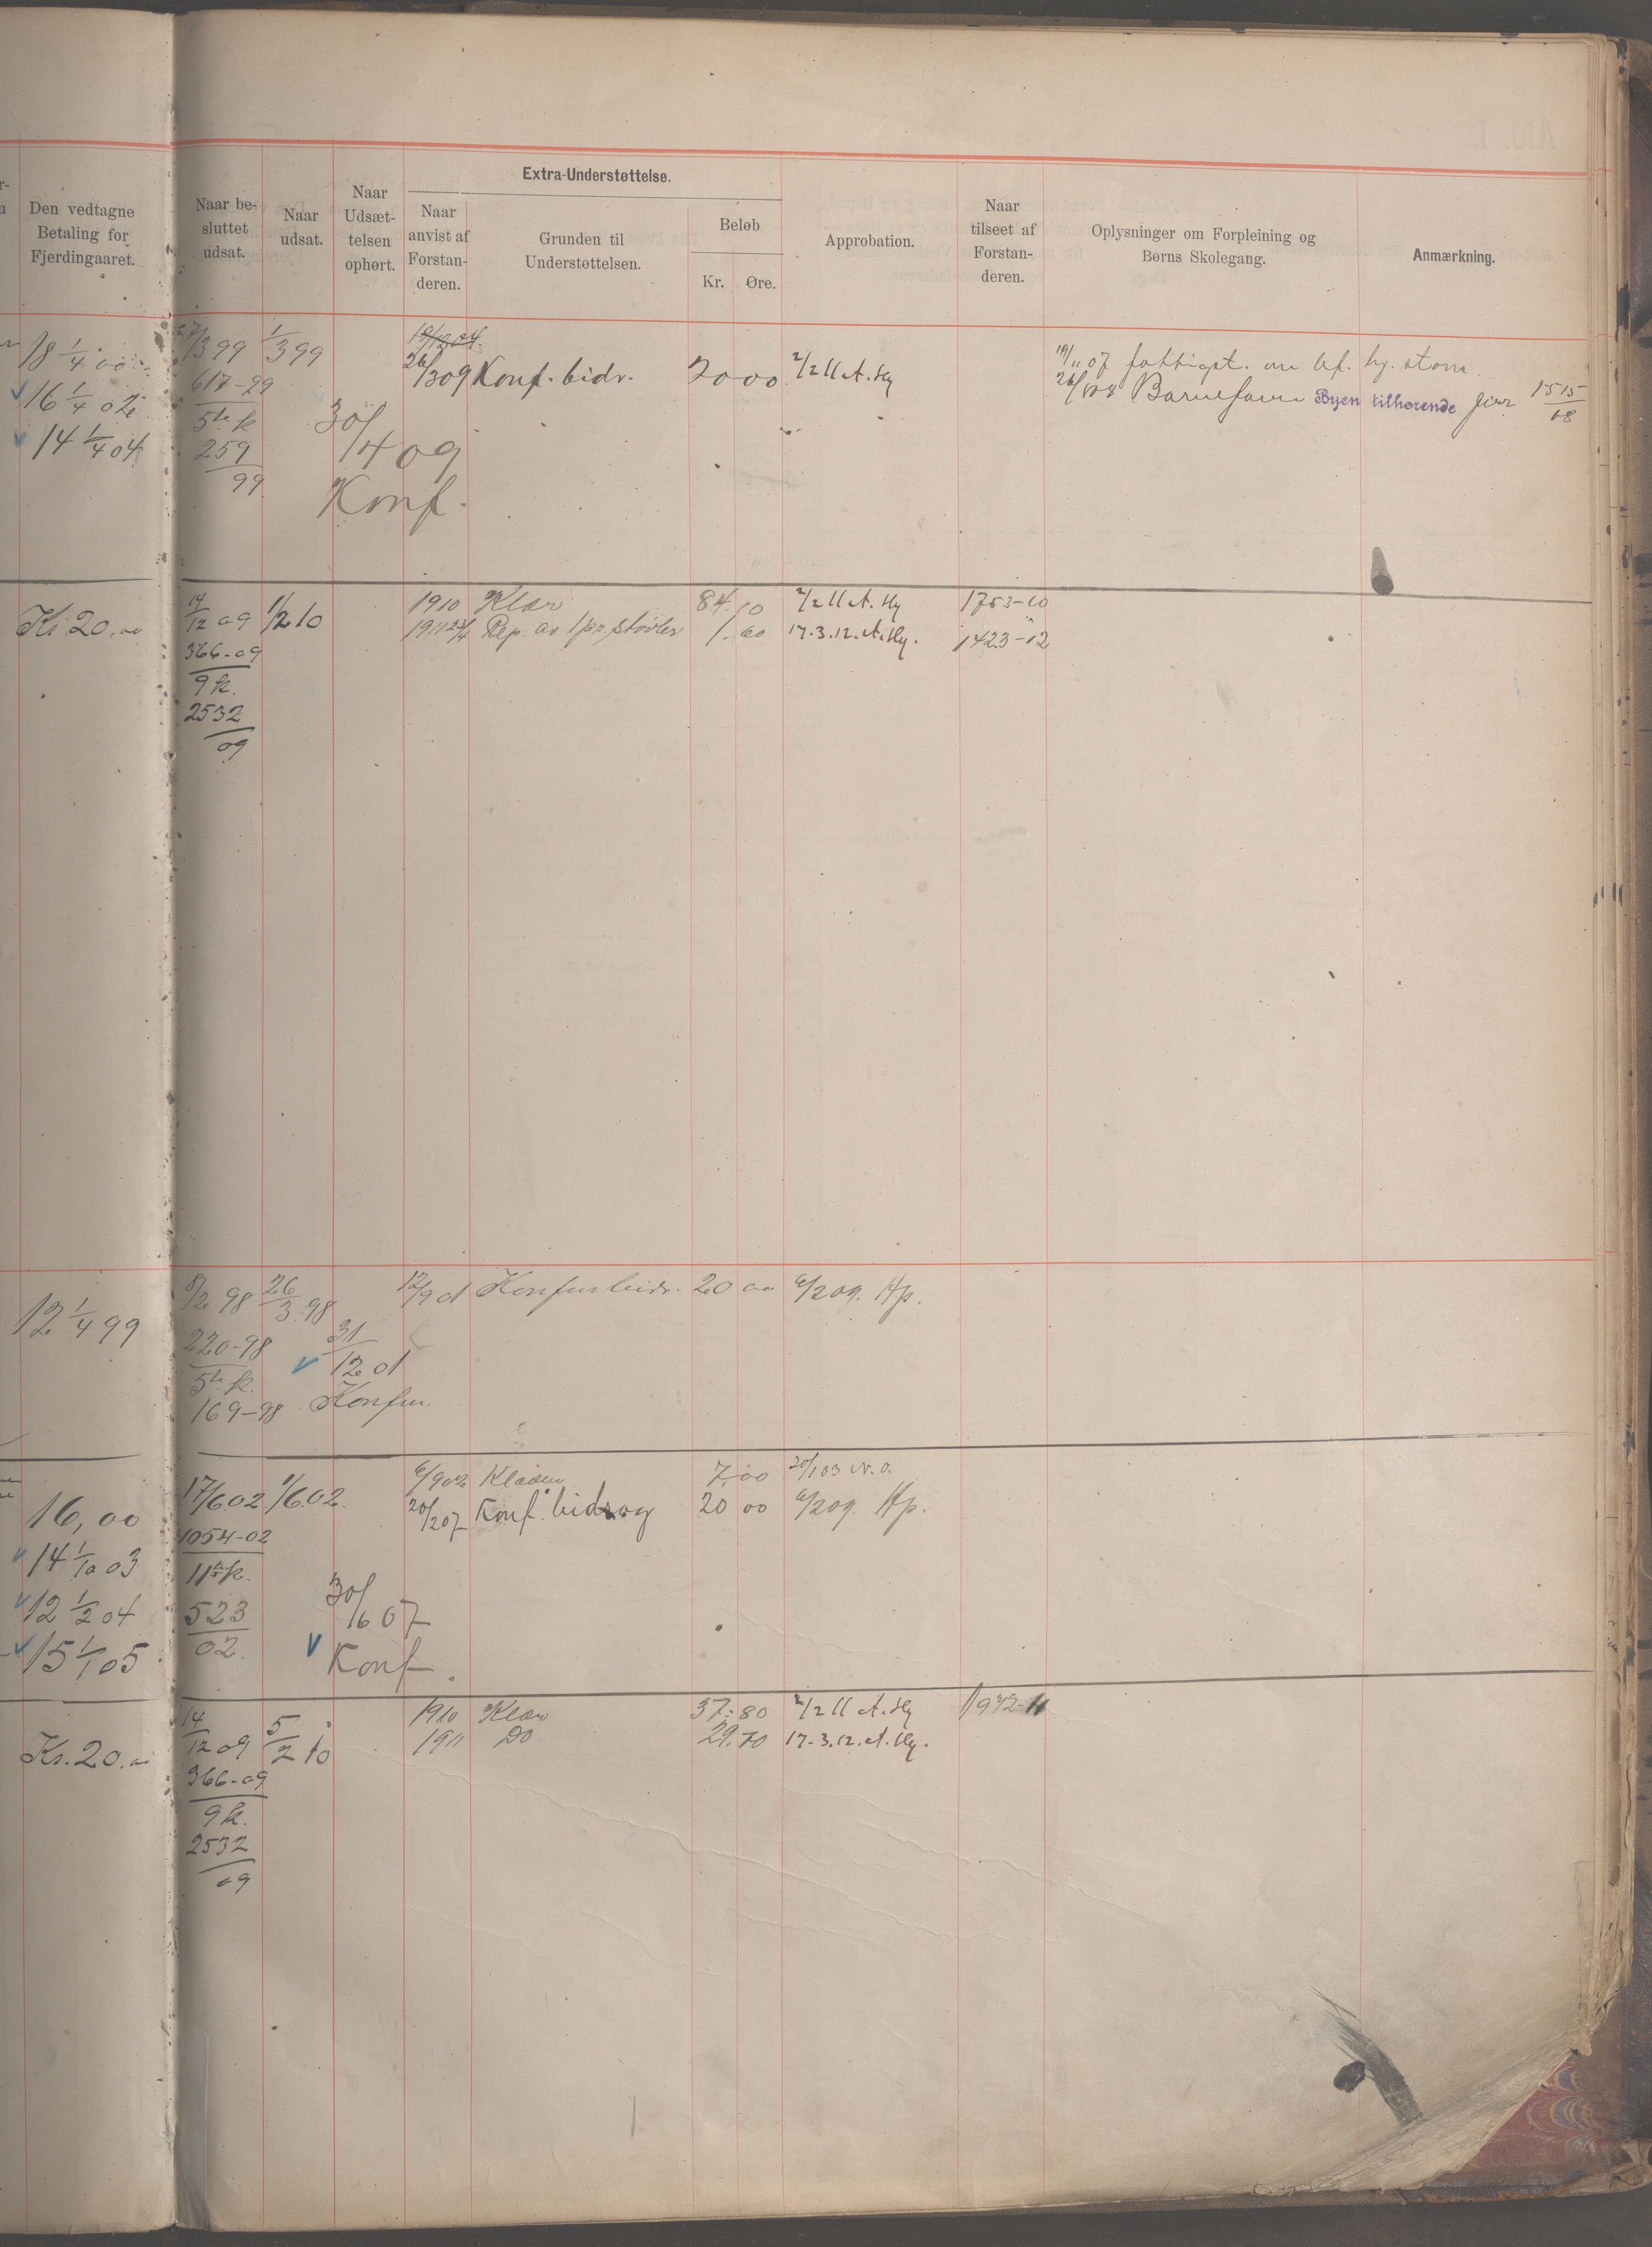 Extra-Understøttelse.
Den vedtagne Betaling for Fjerdingaaret.
Naar be-sluttet udsat.
Naar udsat.
Naar Udsæt-telsen ophørt.
Naar anvist af Forstan-deren.
Grunden til Understøttelsen.
Beløb
Kr. Øre.
Approbation.
Naar tilseet af Forstan-deren.
Oplysninger om Forpleining og Børns Skolegang.
Anmærkning.
18 1/4 00 27/3 99 1/3 99 19/12 04.
26/3 09 Konf. bidr. 20 00 2/2 11 A. Hg 19/11 07
16 1/4 02 617-99 26/ Byen tilhørende 1515/08
14 1/4 04 5te k 30/4 09
259/99 Konf.
Kr. 20,00 14/12 09 1/2 10 1910 Klær 84. 10 2/2 11 A. Hg 1753-10
1911 Rep. av 1 pr. støvler 1. 60 17.3.12. A. Hg. 1423-12
366-09
9 k.
2532/09
12 1/4 99 8/2 98 26/3 98 12/9 01 Konfm bidr. 20 00 6/2 09. Hp.
220-98 31/12 01
5te k. Konfm.
169-98
16,00 17/6 02 1/6 02. 6/9 02 Klæder 7,00 20/1 03
20/2 07 Konf. bidrag 20 00 6/2 09. Hp.
14 1/10 03 1054-02
11te k.
12 1/2 04 523/02. 30/6 07
15 1/1 05 Konf.
Kr. 20,00 14/12 09 5/2 10 1910 Klær 37.80 2/2 11 A. Hg 1972-11
1911 Do 29.70 17.3.12. A. Hg.
366-09
9 k.
2532/09